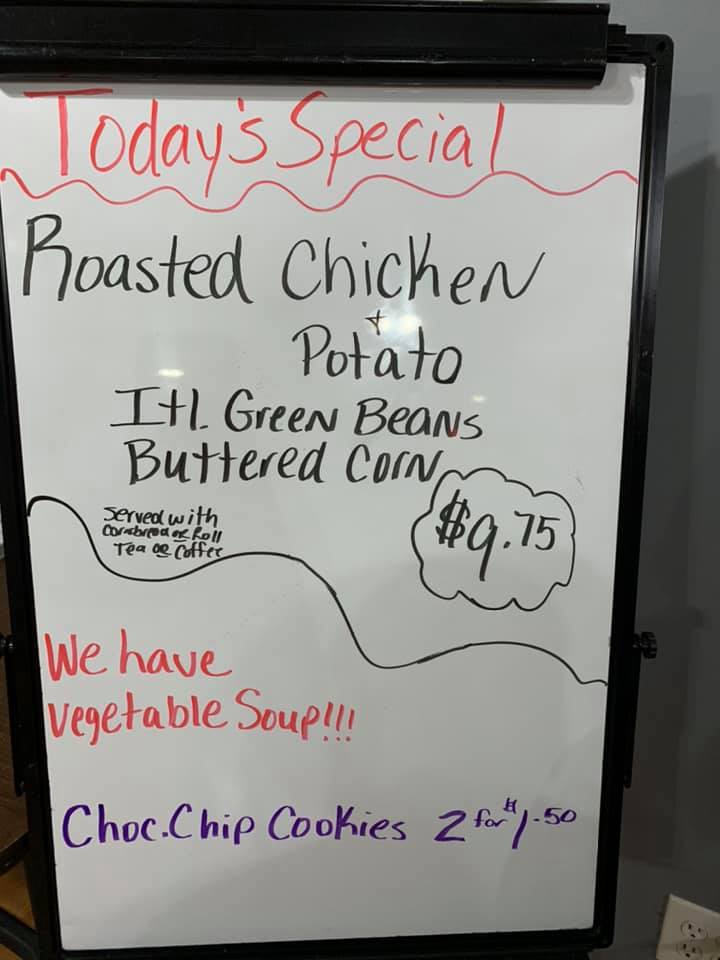 Today's Special
Roasted Chicken
+
Potato
Itl. Green Beans
Buttered Corn
$9.75
Served with
Cornbread or Roll
Tea or Coffee
We have
Vegetable Soup!!!
Choc.Chip Cookies 2 for $1.50